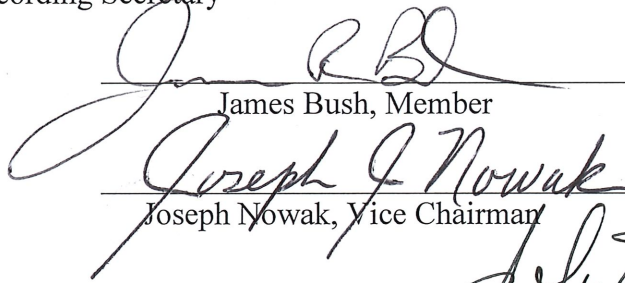 Secretary
James R B
James Bush, Member
Joseph J Nowak
Joseph Nowak, Vice Chairman